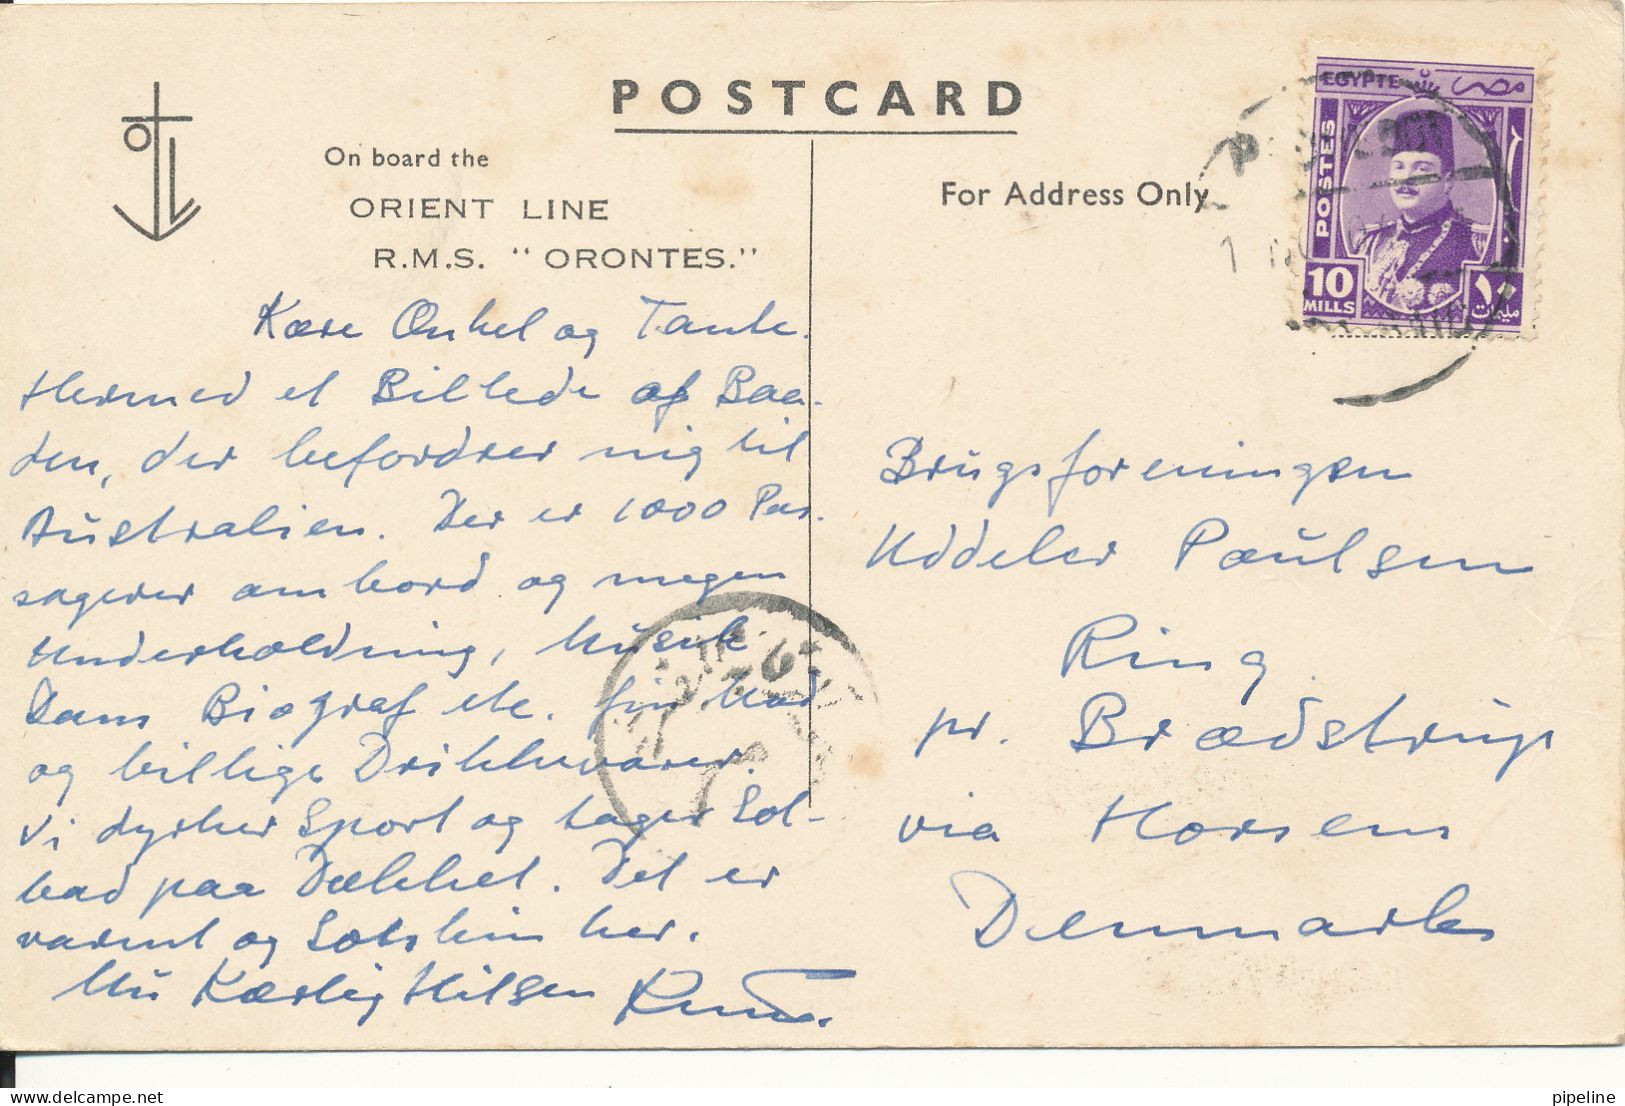 POSTCARD
On board the
ORIENT LINE
R.M.S. "ORONTES."
For Address Only
EGYPTE مصر
POSTES
10
MILLS
١٠
مليمات
Kære Onkel og Tante.
Hermed et Billede af Baa-
den, der befordrer mig til
Australien. Der er 1000 Pas-
sagerer ombord og megen
Underholdning, Musik
Dans Biograf etc. fin Mad
og billige Drikkevarer.
Vi dyrker Sport og tager Sol-
bad paa Dækket. Det er
varmt og Solskin her.
Nu Kærlig Hilsen Knud.
Brugsforeningen
Uddeler Paulsen
Ring
pr. Brædstrup
via Horsens
Denmark
pipeline